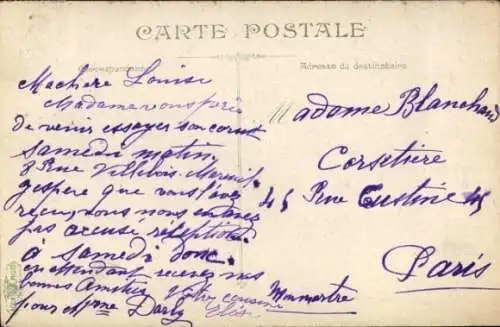 CARTE POSTALE
Correspondance
Adresse du destinataire
Ma chère Louise
Madame vous prie
de venir essayer son corset
samedi matin,
8 Rue Villebois-Mareuil.
j'espère que vous l'avez
reçu, vous nous
pas accuse réception
à samedi donc.
en attendant recevez nos
bonnes Amitiés Votre cousine
pour Mme Darly
Madame Blanchard
Corsetière
45 Rue Custine 45
Montmartre
Paris